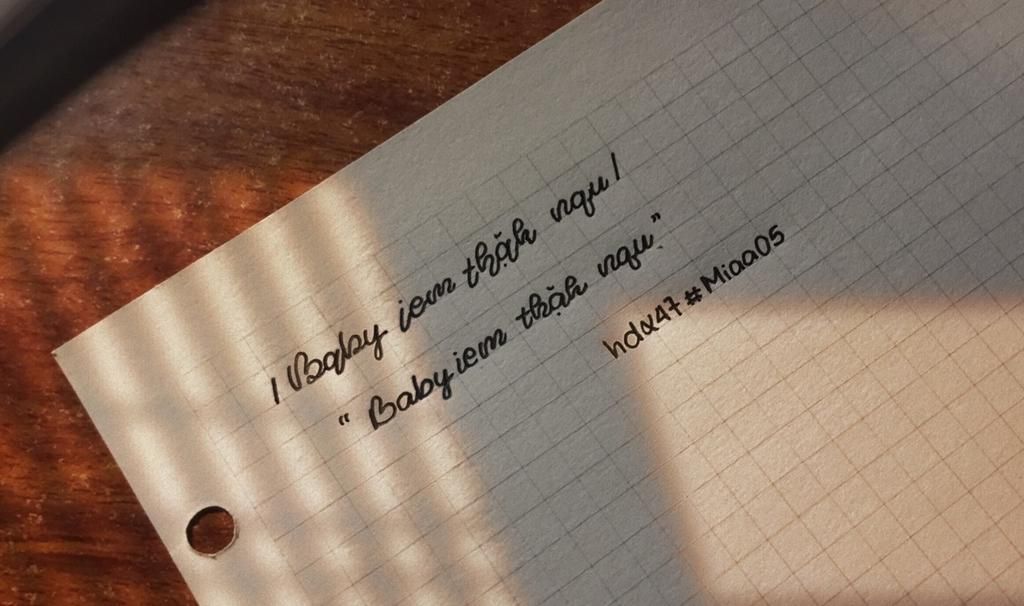 / Baby iem thặk nqu /
“ Baby iem thặk nqu.”
hdx47 #Miaa05